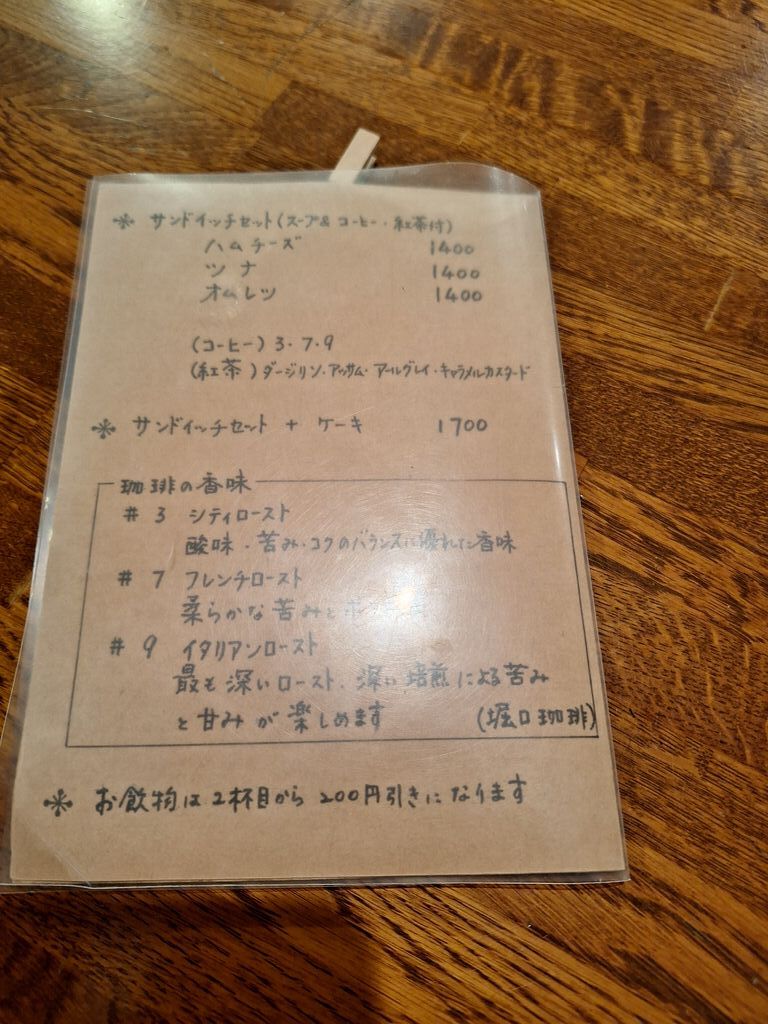 ＊ サンドイッチセット(スープ& コーヒー・紅茶付)
ハムチーズ 1400
ツナ 1400
オムレツ 1400
(コーヒー) 3・7・9
(紅茶) ダージリン・アッサム・アールグレイ・キャラメルカスタード
＊ サンドイッチセット + ケーキ 1700
珈琲の香味
# 3 シティロースト
酸味・苦み・コクのバランスに優れた香味
# 7 フレンチロースト
柔らかな苦みと
# 9 イタリアンロースト
最も深いロースト、深い焙煎による苦み
と甘みが楽しめます (堀口珈琲)
＊ お飲物は2杯目から 200円引きになります